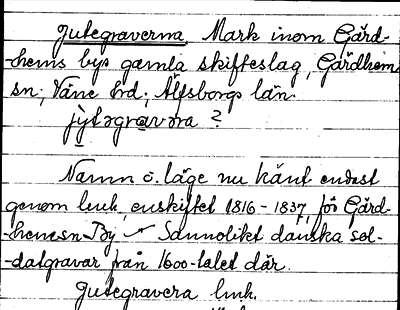 Jutegraverna, Mark inom Gärd-
-hems bys gamla skifteslag, Gärdhem
sn; Väne hd; Älfsborgs län.
jỳtəgravəra ?
Namn o. läge nu känt endast
genom lmh, enskiftet 1816-1837, för Gärd-
-hemssn-By. Sannolikt danska sol-
-datgravar från 1600-talet där.
Jutegravera lmh.